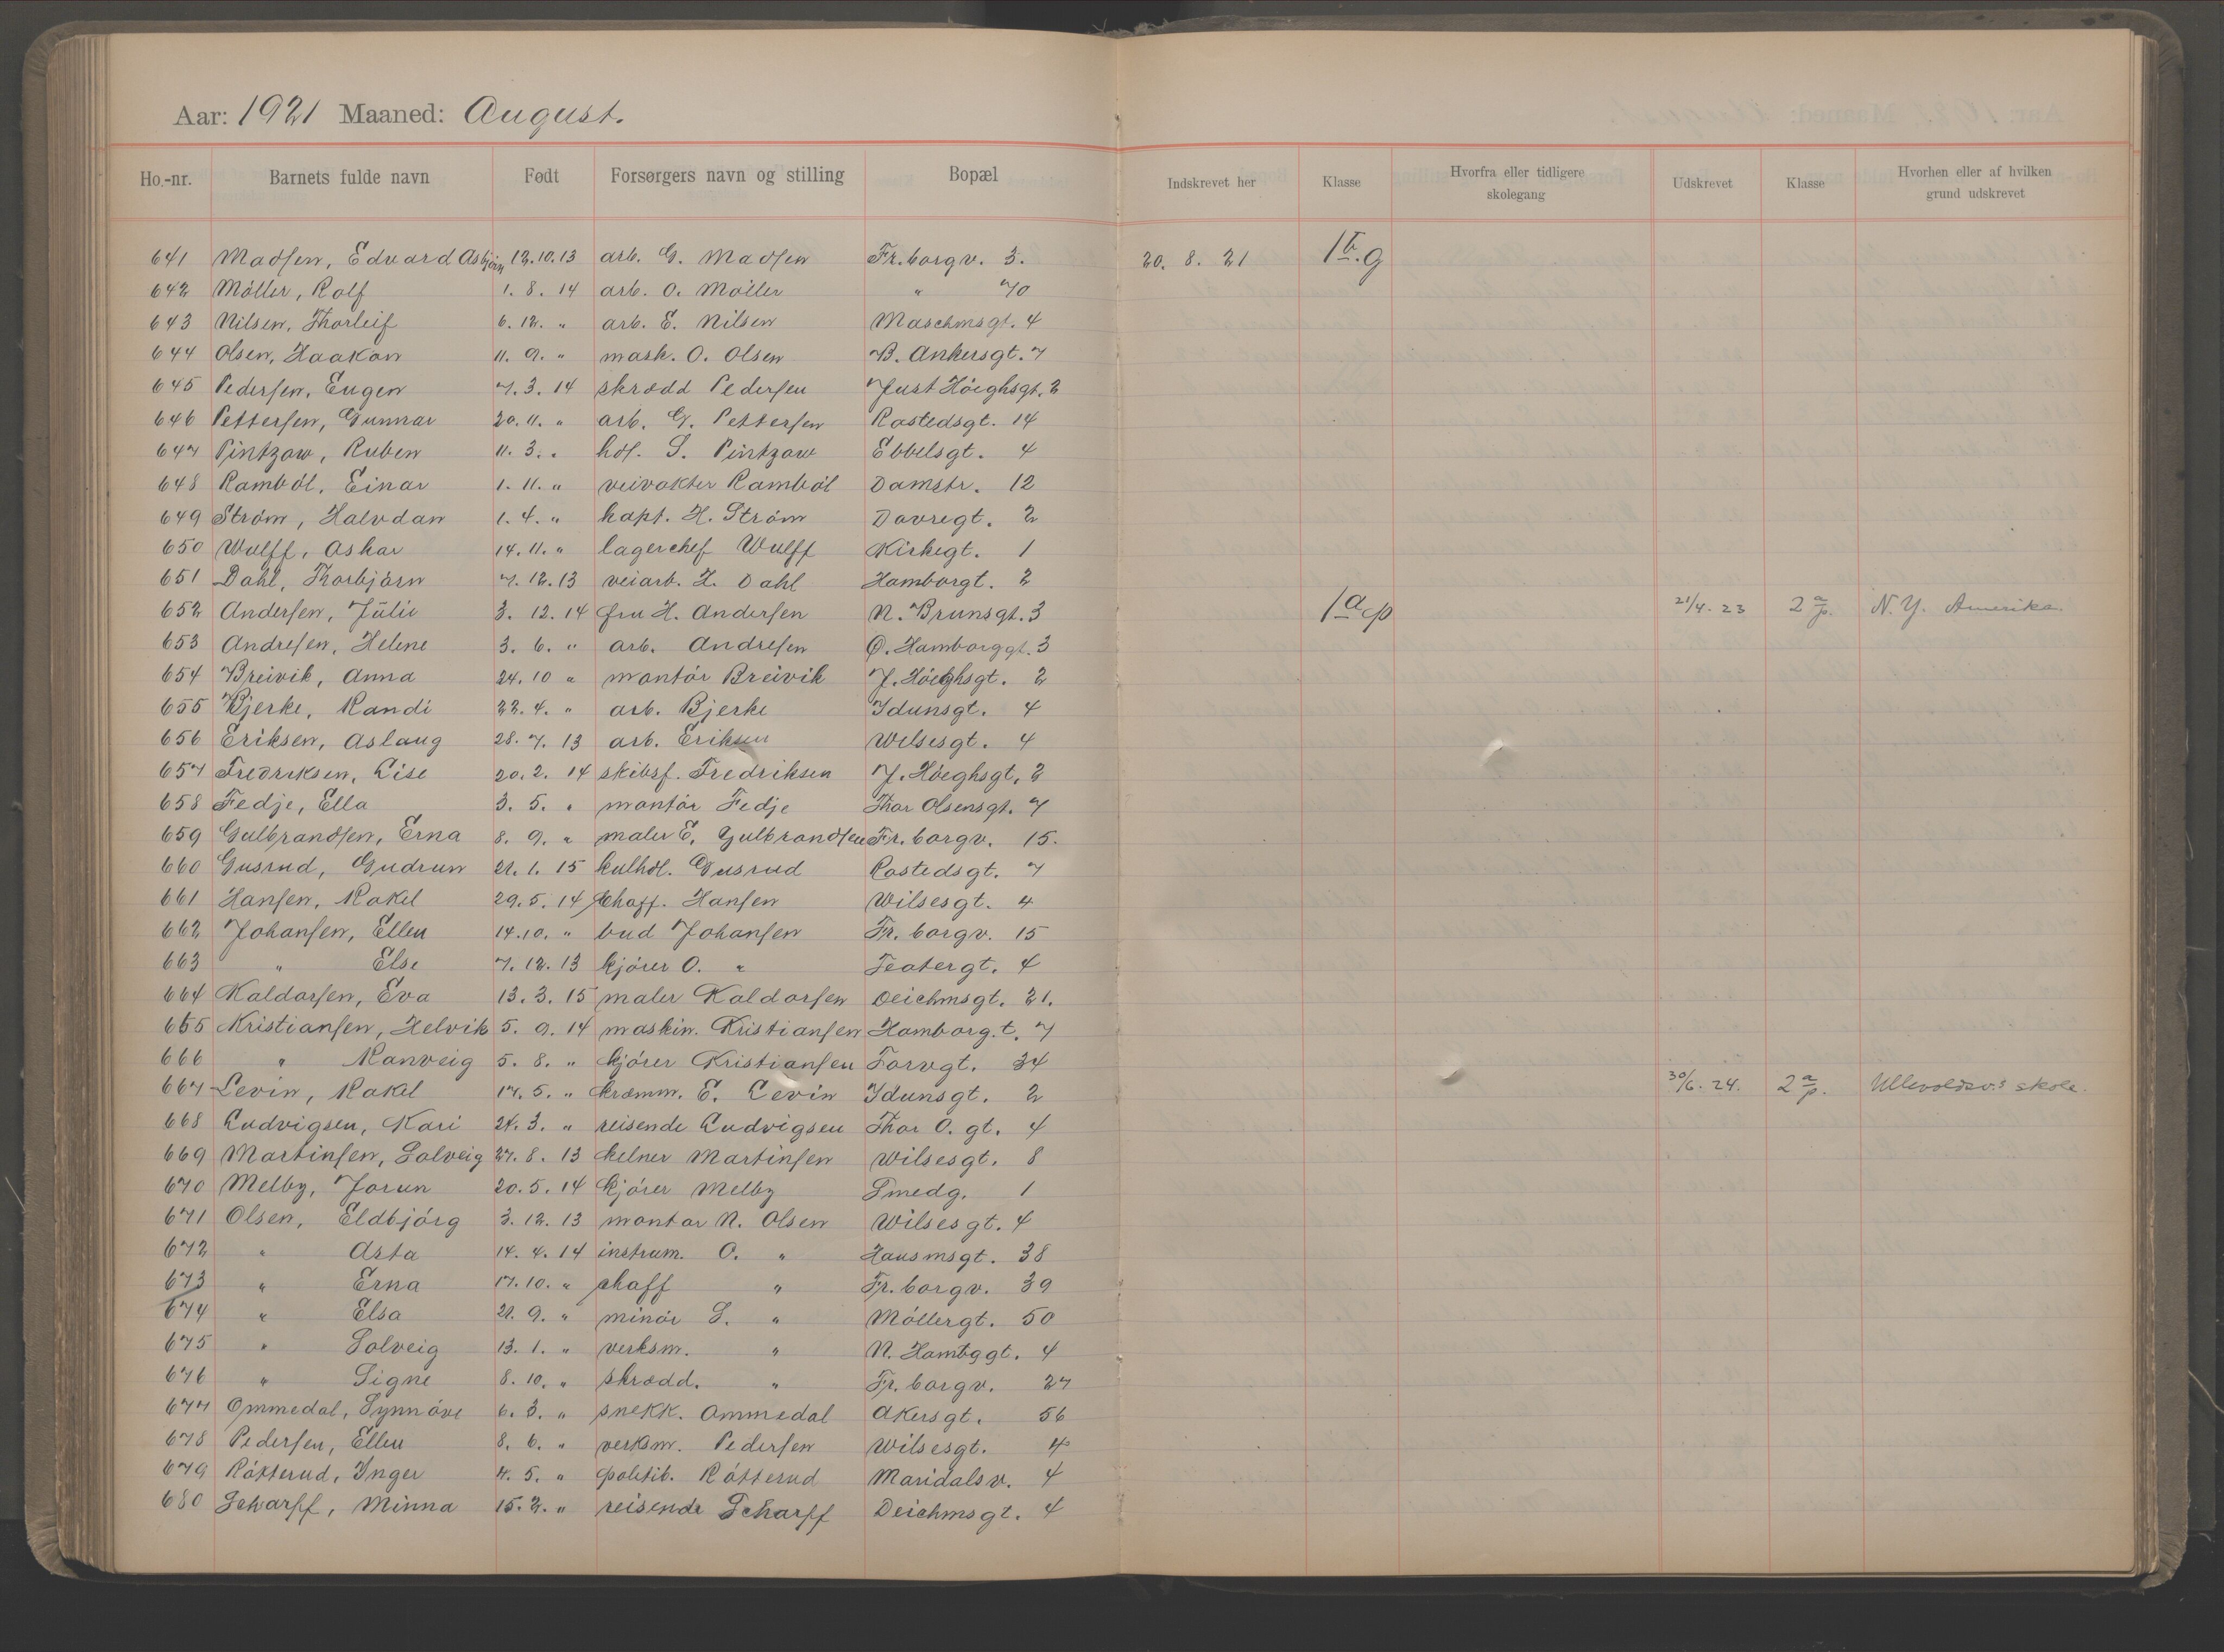 Aar: 1921 Maaned: August.
Ho.-nr. Barnets fulde navn Født Forsørgers navn og stilling Bopæl Indskrevet her Klasse Hvorfra eller tidligere skolegang Udskrevet Klasse Hvorhen eller af hvilken grund udskrevet
641 Madsen, Edvard Asbjörn 12.10.13 arb. G. Madsen Fr.borgv. 3. 20. 8. 21 1 b. g
642 Möller, Rolf 1. 8. 14 arb. O. Möller " 70
643 Nilsen, Thorleif 6. 12. " arb. E. Nilsen Maschmsgt. 4
644 Olsen, Haakon 11. 9. " mask. O. Olsen B. Ankersgt. 7
645 Pedersen, Eugen 7. 3. 14 skrædd Pedersen Just Höeghsgt. 2
646 Pettersen, Gunnar 20. 11. " arb. G. Pettersen Rostedsgt. 14
647 Pintzow, Ruben 11. 3. " hdl. S. Pintzow Ebbelsgt. 4
648 Ramböl, Einar 1. 11. " veivokter Ramböl Damstr. 12
649 Ström, Halvdan 1. 4. " kapt. H. Ström Dovregt. 2
650 Wulff, Oskar 14. 11. " lagerchef Wulff Kirkegt. 1
651 Dahl, Thorbjörn 7. 12. 13 veiarb. H. Dahl Hamborgt. 2
652 Andersen, Julie 3. 12. 14 fru H. Andersen N. Brunsgt. 3 1 a p 21/4. 23 2 a p. N.Y. Amerika.
653 Andresen, Helene 3. 6. " arb. Andresen Ø. Hamborggt. 3
654 Breivik, Anna 24. 10 " montör Breivik J. Höeghsgt. 2
655 Bjerke, Randi 22. 4. " arb. Bjerke Idunsgt. 4
656 Eriksen, Aslaug 28. 7. 13 arb. Eriksen Wilsesgt. 4
657 Fredriksen, Lise 20. 2. 14 skibsf. Fredriksen J. Höeghsgt. 2
658 Fedje, Ella 3. 5. " montör Fedje Thor Olsensgt. 7
659 Gulbrandsen, Erna 8. 9. " maler E. Gulbrandsen Fr.borgv. 15.
660 Gusrud, Gudrun 21. 1. 15 kulhdl. Gusrud Rostedsgt. 7
661 Hansen, Rakel 29. 5. 14 chaff. Hansen Wilsesgt. 4
662 Johansen, Ellen 14. 10. " bud Johansen Fr.borgv. 15
663 " Else 7. 12. 13 kjörer O. " Teatergt. 4
664 Kaldorsen, Eva 13. 3. 15 maler Kaldorsen Deichmsgt. 21.
665 Kristiansen, Helvik 5. 9. 14 maskin. Kristiansen Hamborg.t. 7
666 " Ranveig 5. 8. " kjörer Kristiansen Torvgt. 34
667 Levin, Rakel 17. 5. " kræmm. E. Levin Idunsgt. 2 30/6. 24. 2 a p. Ullevoldsv.s skole.
668 Ludvigsen, Kari 24. 3. " reisende Ludvigsen Thor O. gt. 4
669 Martinsen, Solveig 27. 8. 13 kelner Martinsen Wilsesgt. 8
670 Melby, Jorun 20. 5. 14 kjörer Melby Smedg. 1
671 Olsen, Eldbjörg 3. 12. 13 montör N. Olsen Wilsesgt. 4
672 " Asta 14. 4. 14 instrum. O. " Hausmsgt. 38
673 " Erna 17. 10. " chaff " Fr.borgv. 39
674 " Elsa 21. 9. " minör S. " Möllergt. 50
675 " Solveig 13. 1. " verksm. " N. Hambggt. 4
676 " Signe 8. 10. " skrædd. " Fr.borgv. 27
677 Ommedal, Synnöve 6. 3. " snekk. Ommedal Akersgt. 56
678 Pedersen, Ellen 8. 6. " verksm. Pedersen Wilsesgt. 4
679 Rötterud, Inger 4. 5. " politib. Rötterud Maridalsv. 4
680 Scharff, Minna 15. 2. " reisende Scharff Deichmsgt. 4